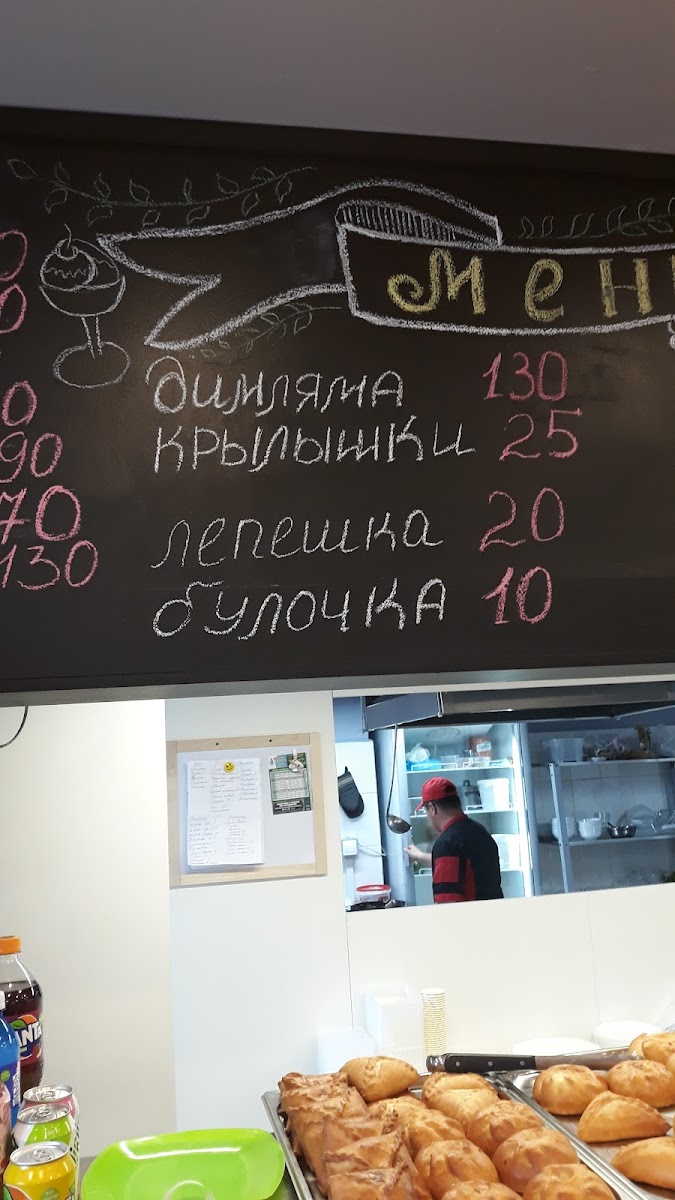 Мен
димляма 130
крылышки 25
лепешка 20
булочка 10
0
0
0
90
70
130